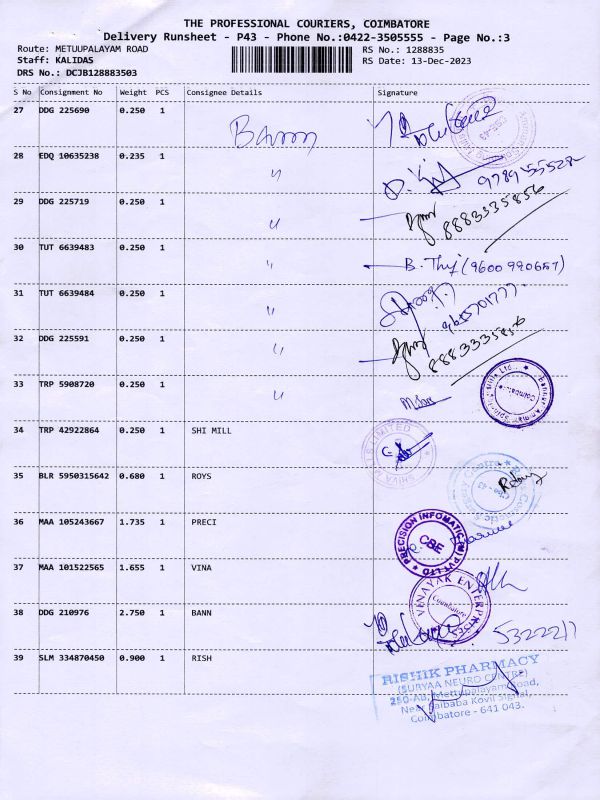 THE PROFESSIONAL COURIERS, COIMBATORE
Delivery Runsheet - P43 - Phone No.:0422-3505555 - Page No.:3
Route: METUUPALAYAM ROAD
RS No.: 1288835
Staff: KALIDAS
RS Date: 13-Dec-2023
DRS No.: DCJB128883503
S No Consignment No Weight PCS Consignee Details Signature
27 DDG 225690 0.250 1
28 EDQ 10635238 0.235 1 "
29 DDG 225719 0.250 1 " 8883335856
30 TUT 6639483 0.250 1 " B. (9600 990657)
31 TUT 6639484 0.250 1 "
32 DDG 225591 0.250 1 " 8883335856
33 TRP 5908720 0.250 1 "
34 TRP 42922864 0.250 1 SHI MILL LIMITED
35 BLR 5950315642 0.680 1 ROYS
36 MAA 105243667 1.735 1 PRECI PRECISION INFOMATIC (M) PVT LTD CBE
37 MAA 101522565 1.655 1 VINA VINAYAK ENTERPRISES Coimbatore
38 DDG 210976 2.750 1 BANN
39 SLM 334870450 0.900 1 RISH
RISHIK PHARMACY
(SURYAA NEURO CENTRE)
250-AB, Mettupalayam Road,
Near Saibaba Kovil Signal,
Coimbatore - 641 043.